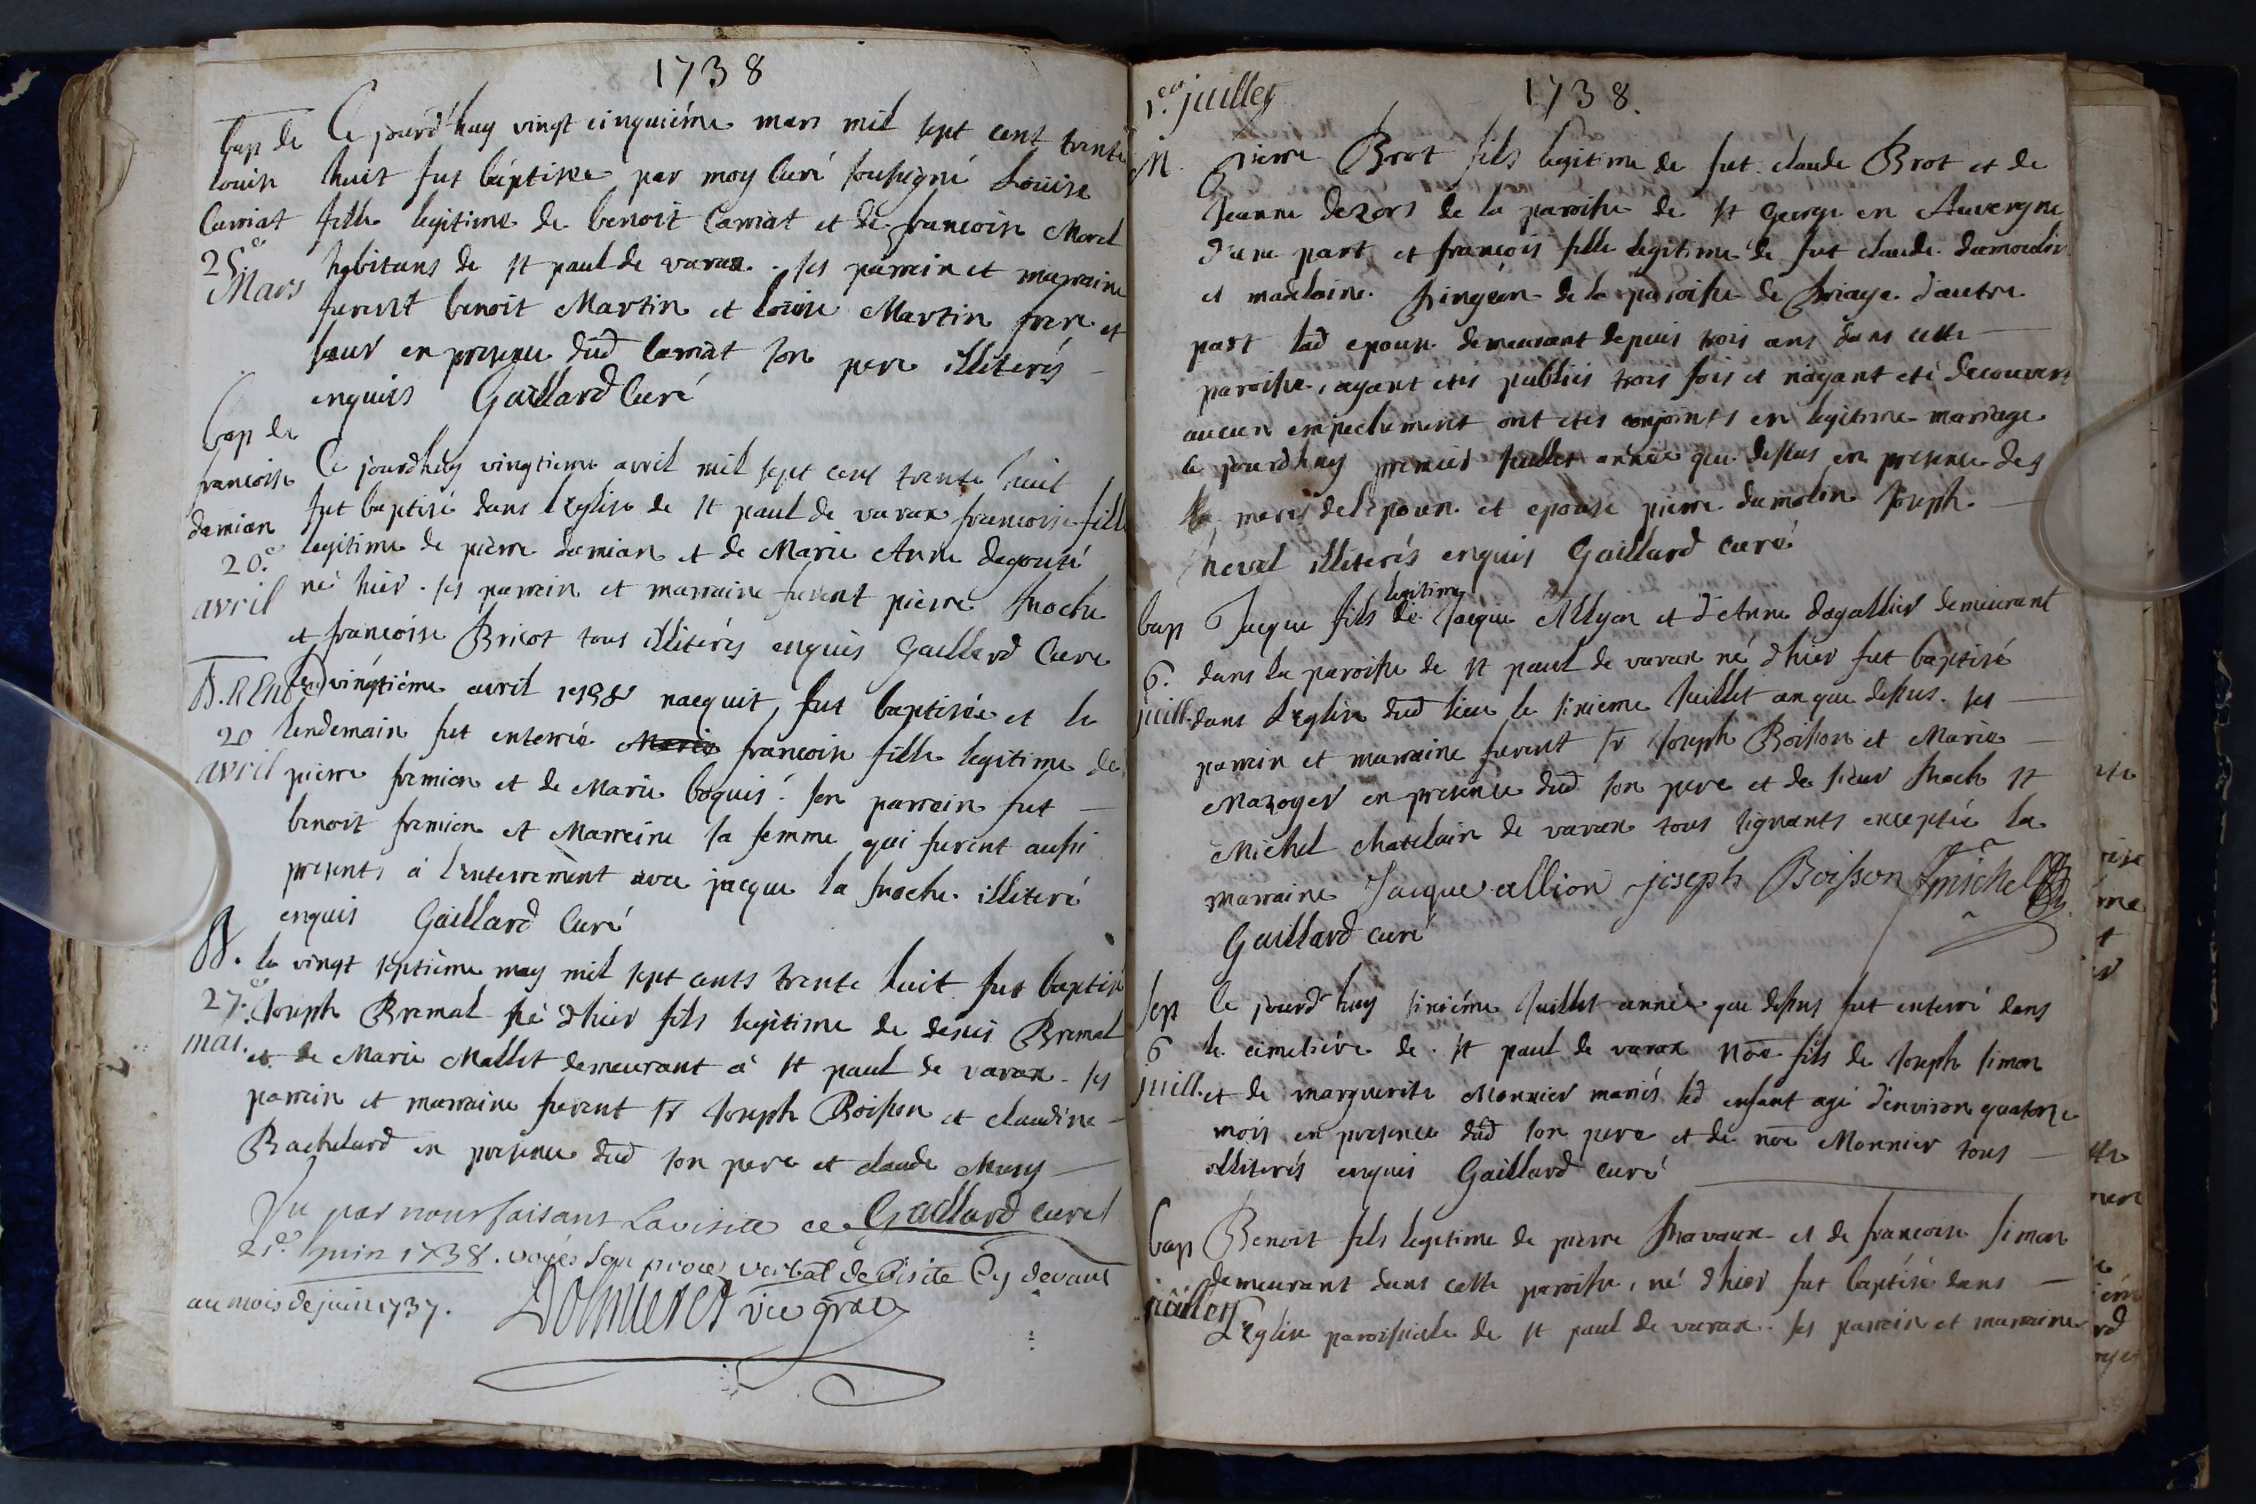 1738
bap de
louise
Carniat
25e
Mars
Ce jourd'huy vingt cinquiéme mars mil sept cent trente
huit fut báptisée par moy Curé soussigné Loüise
fille legitime de benoit Carniat et de francoise Morel
habitans de st paul de varax. ses parrein et marraine
furent benoit Martin et loüise Martin frere et
soeur en presence dud Carniat son pere illiterés
enquis Gaillard Curé
bap de
francoise
damian
20e
avril
Ce jourdhuy vingtieme avril mil sept cent trente huit
fut baptisé dans l'Eglise de st paul de varax francoise fille
legitime de pièrre damian et de Marie Anne degouté
né hier. ses parrein et marraine furent pierre
et francoise Bricot tous illiterés enquis Gaillard Curé
20
avril
Le vingtiéme avril 1738 nacquit, fut baptisée et le
lendemain fut enterrée Marie francoise fille legitime de
pierre fremion et de Marie boquis. son parrein fut
benoit fremion et Marreine sa femme qui furent aussi
presents à l'enterrement avec jacque la illiteré
enquis Gaillard Curé
B.
27e
mai.
le vingt septième may mil sept cents trente huit fut baptisé
Joseph Bremal né d'hier fils legitime de denis Bremal
et de Marie Mallet demeurant à st paul de varax. ses
parrein et marraine furent sr Joseph Boisson et claudine
Bachelard en presence dud son pere et claude Musy
Gaillard curé
Vu par nous faisant La visite ce
21e juin 1738. voyés son procés verbal de visite Cy devant
au mois de juin 1737. vic gral
1er juillet
1738.
M.
pierre Brot fils legitime de fut claude Brot et de
Jeanne dezors de la paroisse de st George en Auvergne
d'une part et francois fille legitime de fut claude damoulin
et madelaine de la paroisse de d'autre
part lad epouse demeurant depuis trois ans dans cette
paroisse, ayant etés publiés trois fois et n'ayant eté decouvert
aucun empechement ont etés conjoints en legitime mariage
ce jourdhuy premier Juillet année que dessus en presence des
meres de l'epoux et epouse pierre dumolin Joseph
illiterés enquis Gaillard curé
bap
6.
juill.
Jacque fils legitime de Jacque Allyon et d'Anne dagallier demeurant
dans la paroisse de st paul de varax né d'hier fut baptisé
dans L'Eglise dud lieu le sixieme Juillet an que dessus. ses
parrein et marraine furent sr Joseph Boisson et Marie
Mazoyer en presence dud son pere et de sieur st
Michel chatelain de varax tous signants exceptée la
marraine Jacque allion joseph Boisson Stmichel
Gaillard curé
sep
6
juill.
Ce jourd'huy sixiéme Juillet année que dessus fut enterré dans
le cimetiére de st paul de varax noe fils de Joseph simon
et de marguerite Monnier mariés led enfant agé d'environ quatorze
mois en presence dud son pere et de noe Monnier tous
illiterés enquis Gaillard curé
bap
juillet
Benoit fils legitime de pierre et de francoise simon
demeurant dans cette paroisse, né d'hier fut baptisé dans
L'Eglise paroissiale de st paul de varax. ses parrein et marraine